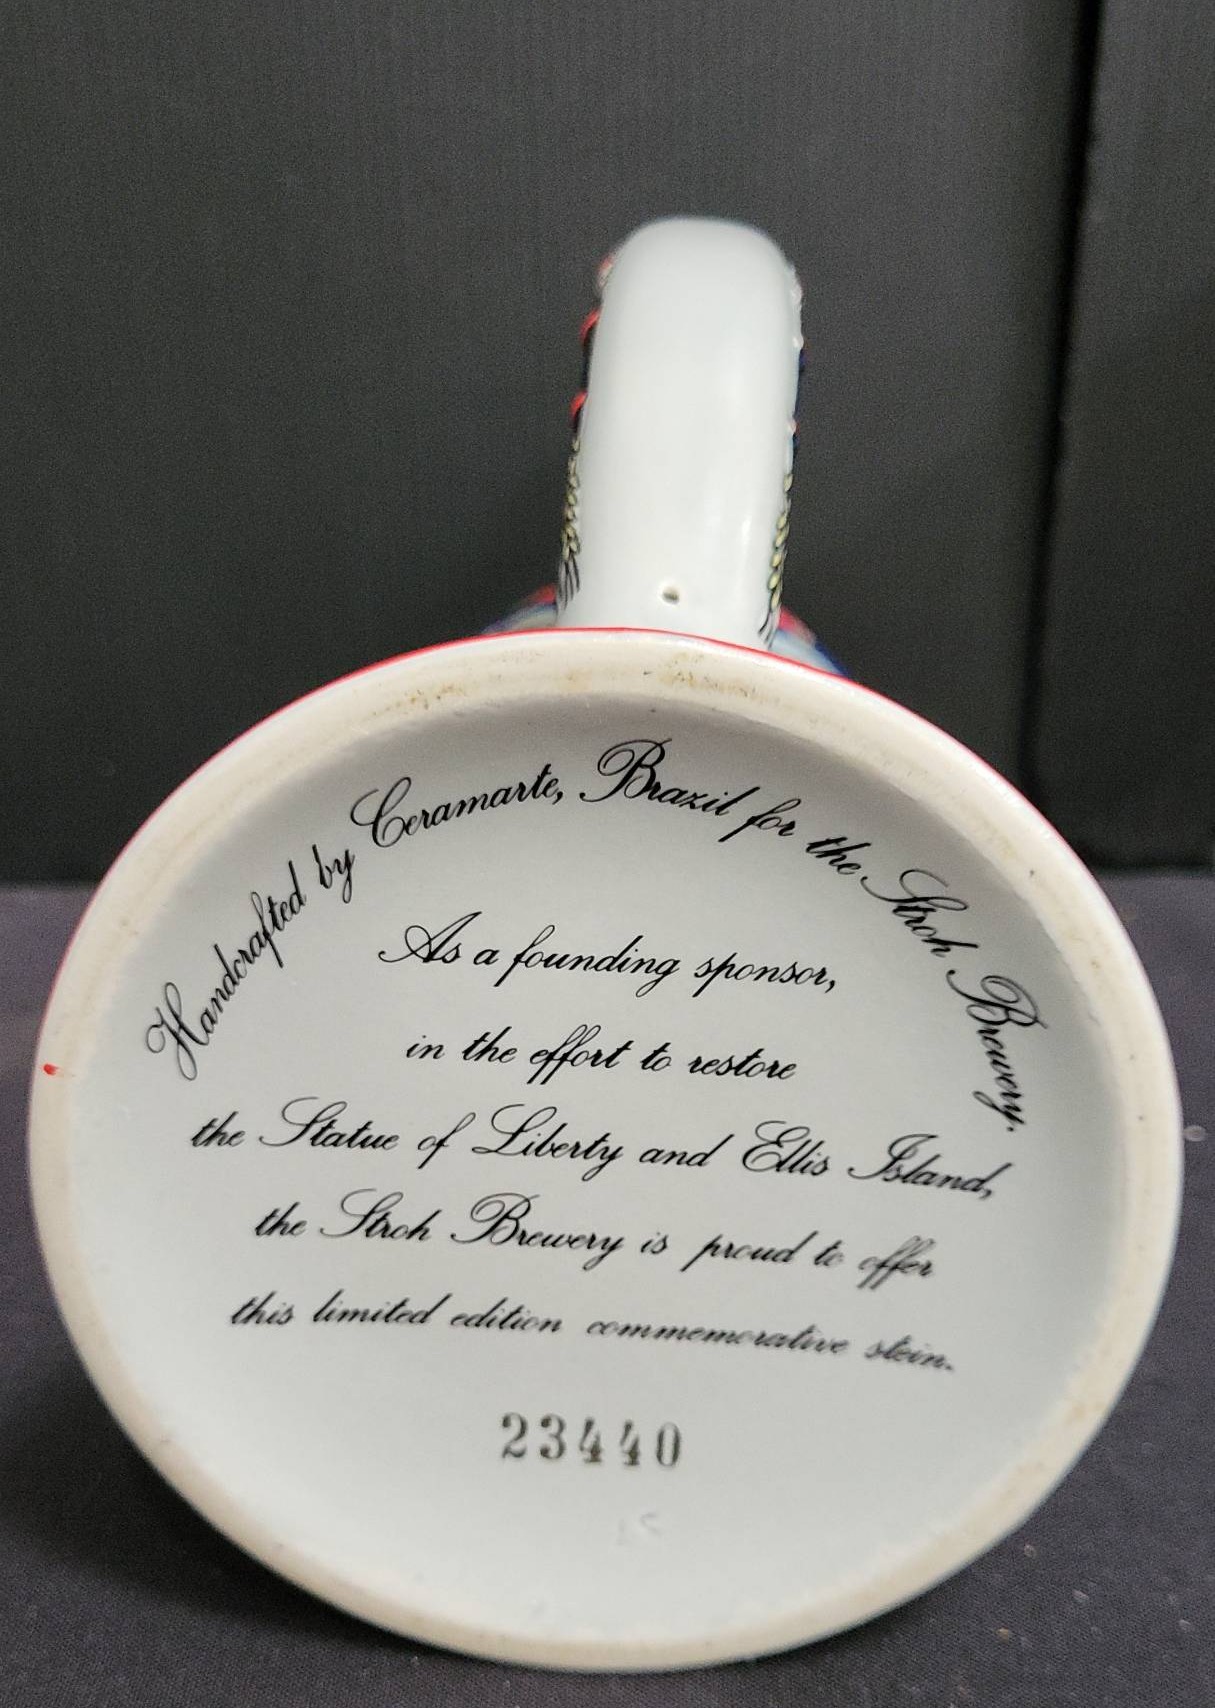 Handcrafted by Ceramarte, Brazil for the Stroh Brewery.
As a founding sponsor,
in the effort to restore
the Statue of Liberty and Ellis Island,
the Stroh Brewery is proud to offer
this limited edition commemorative stein.
23440